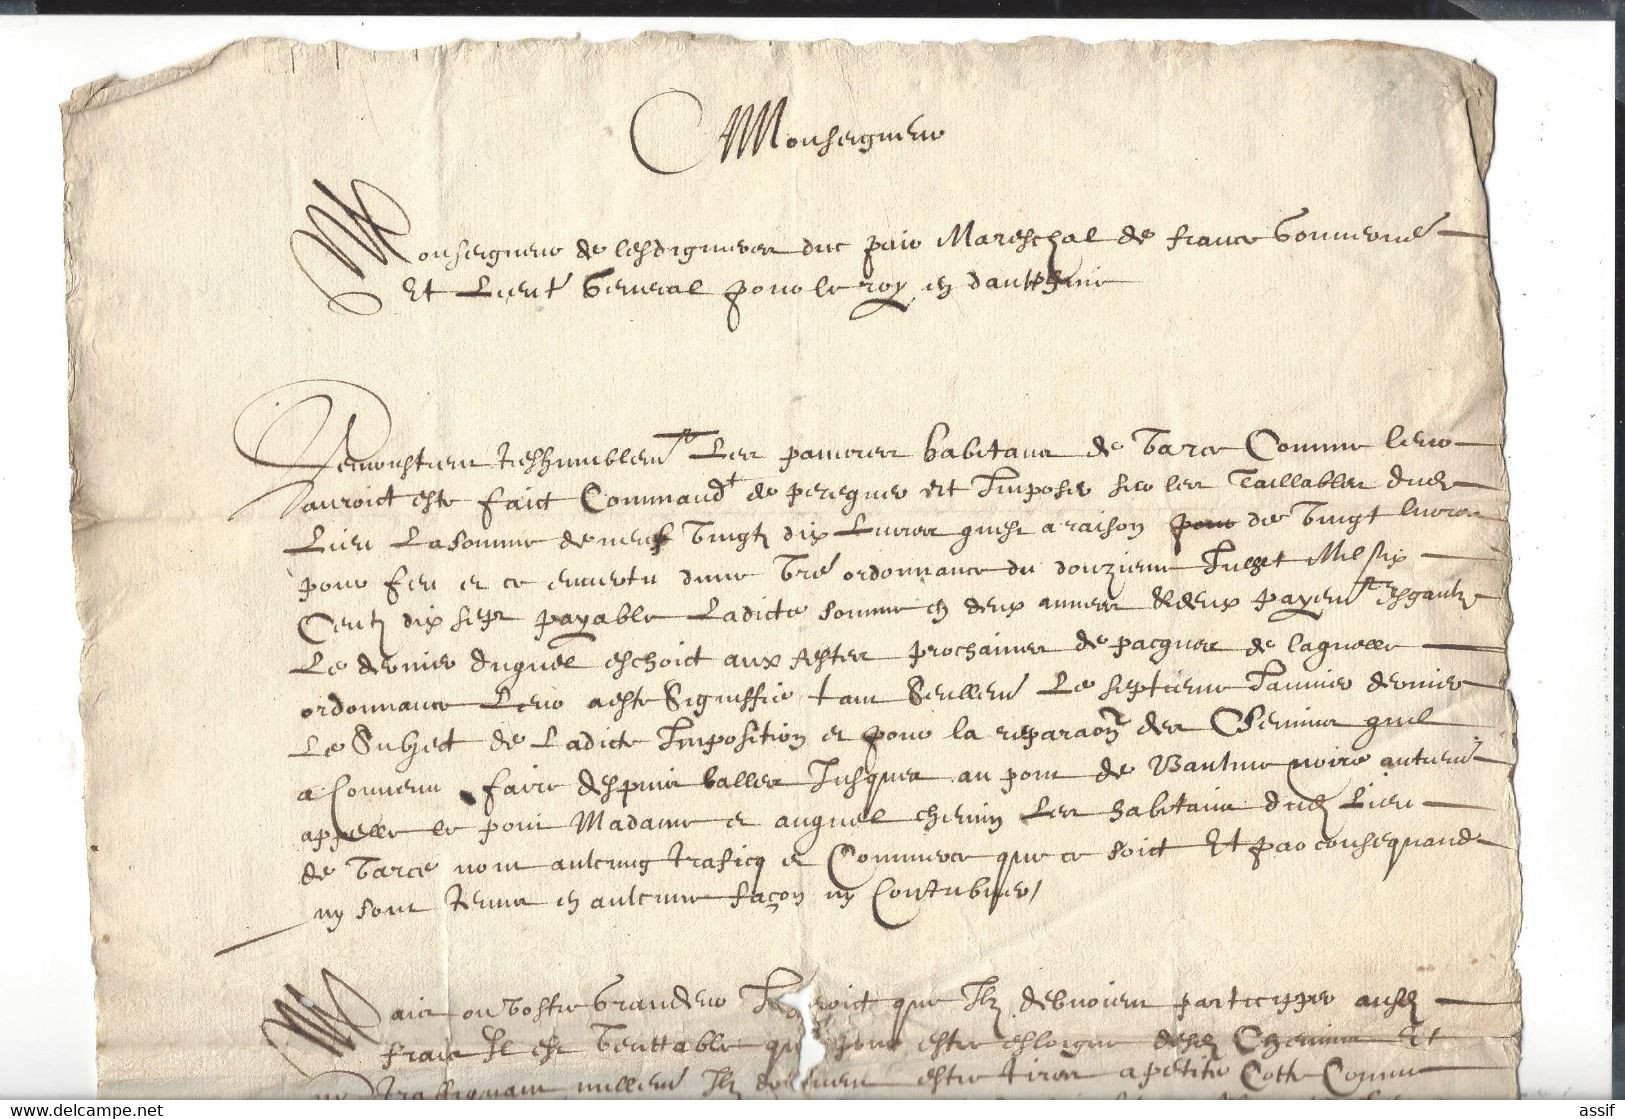 Monseigneur
Monseigneur de lesdiguieres duc pair Mareschal de france Gouverneʳ
Et Lieutᵗ General pour le roy en dauphine
Remonstrent treshumblemᵗ Les pauvres habitans de Varce Comme leur
auroict este faict Commandᵗ de perequer et Imposer sur les Taillables dud
Lieu La somme de neuf vingtz dix Livres quest a raison pour de vingt livres
pour feu et ce en vertu dune vre ordonnance du douzieme Juillet Mil six
Centz dix sept payable Ladicte somme en deux annees & deux payemᵗˢ esgaulx
Le dernier duquel eschoict aux festes prochaines de pacques de laquelle
ordonnance Leur a este Signiffie tant Seullemᵗ Le septieme Janvier dernier
Le Subject de Ladicte Imposition est pour la reparaon des Chemins quil
a Convenu faire despuis Jusques au pont de noire autremᵗ
appelle le pont Madame et auquel chemin Les habitans dud Lieu
de Varce nont aulcung traficq et Commerce que ce soict Et par consequand
ny sont tenus en aulcune façon ny Contribuer /
Mais ou vostre Grandeur que Ilz debvoient participper ausd
fraix Il est veritable qu pour estre esloigne desd Chemins Et
ny traffiquant nullemᵗ Ilz estre tires a petite Cotte Comme
assif
delcampe.net